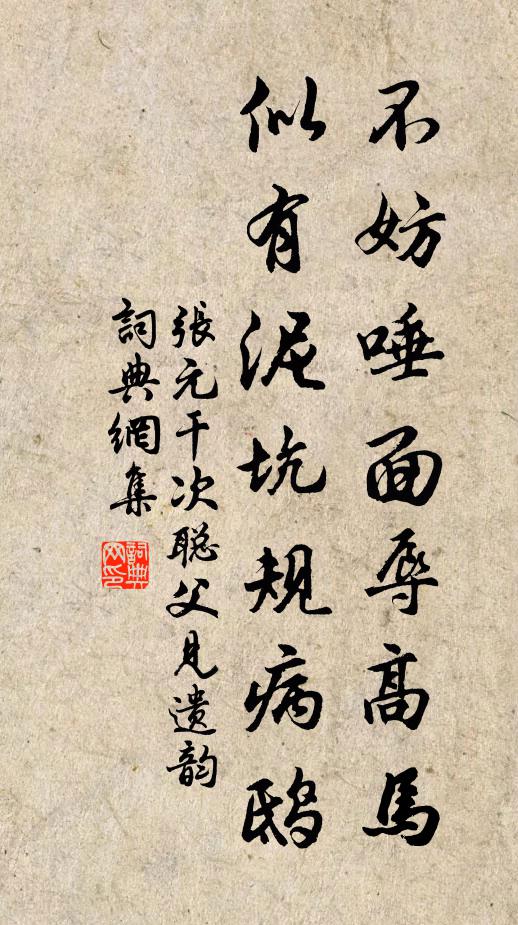 不妨唾面辱高馬
似有泥坑規病鴟
張元干次聪父見遺韵
詞典網集
詞典網印